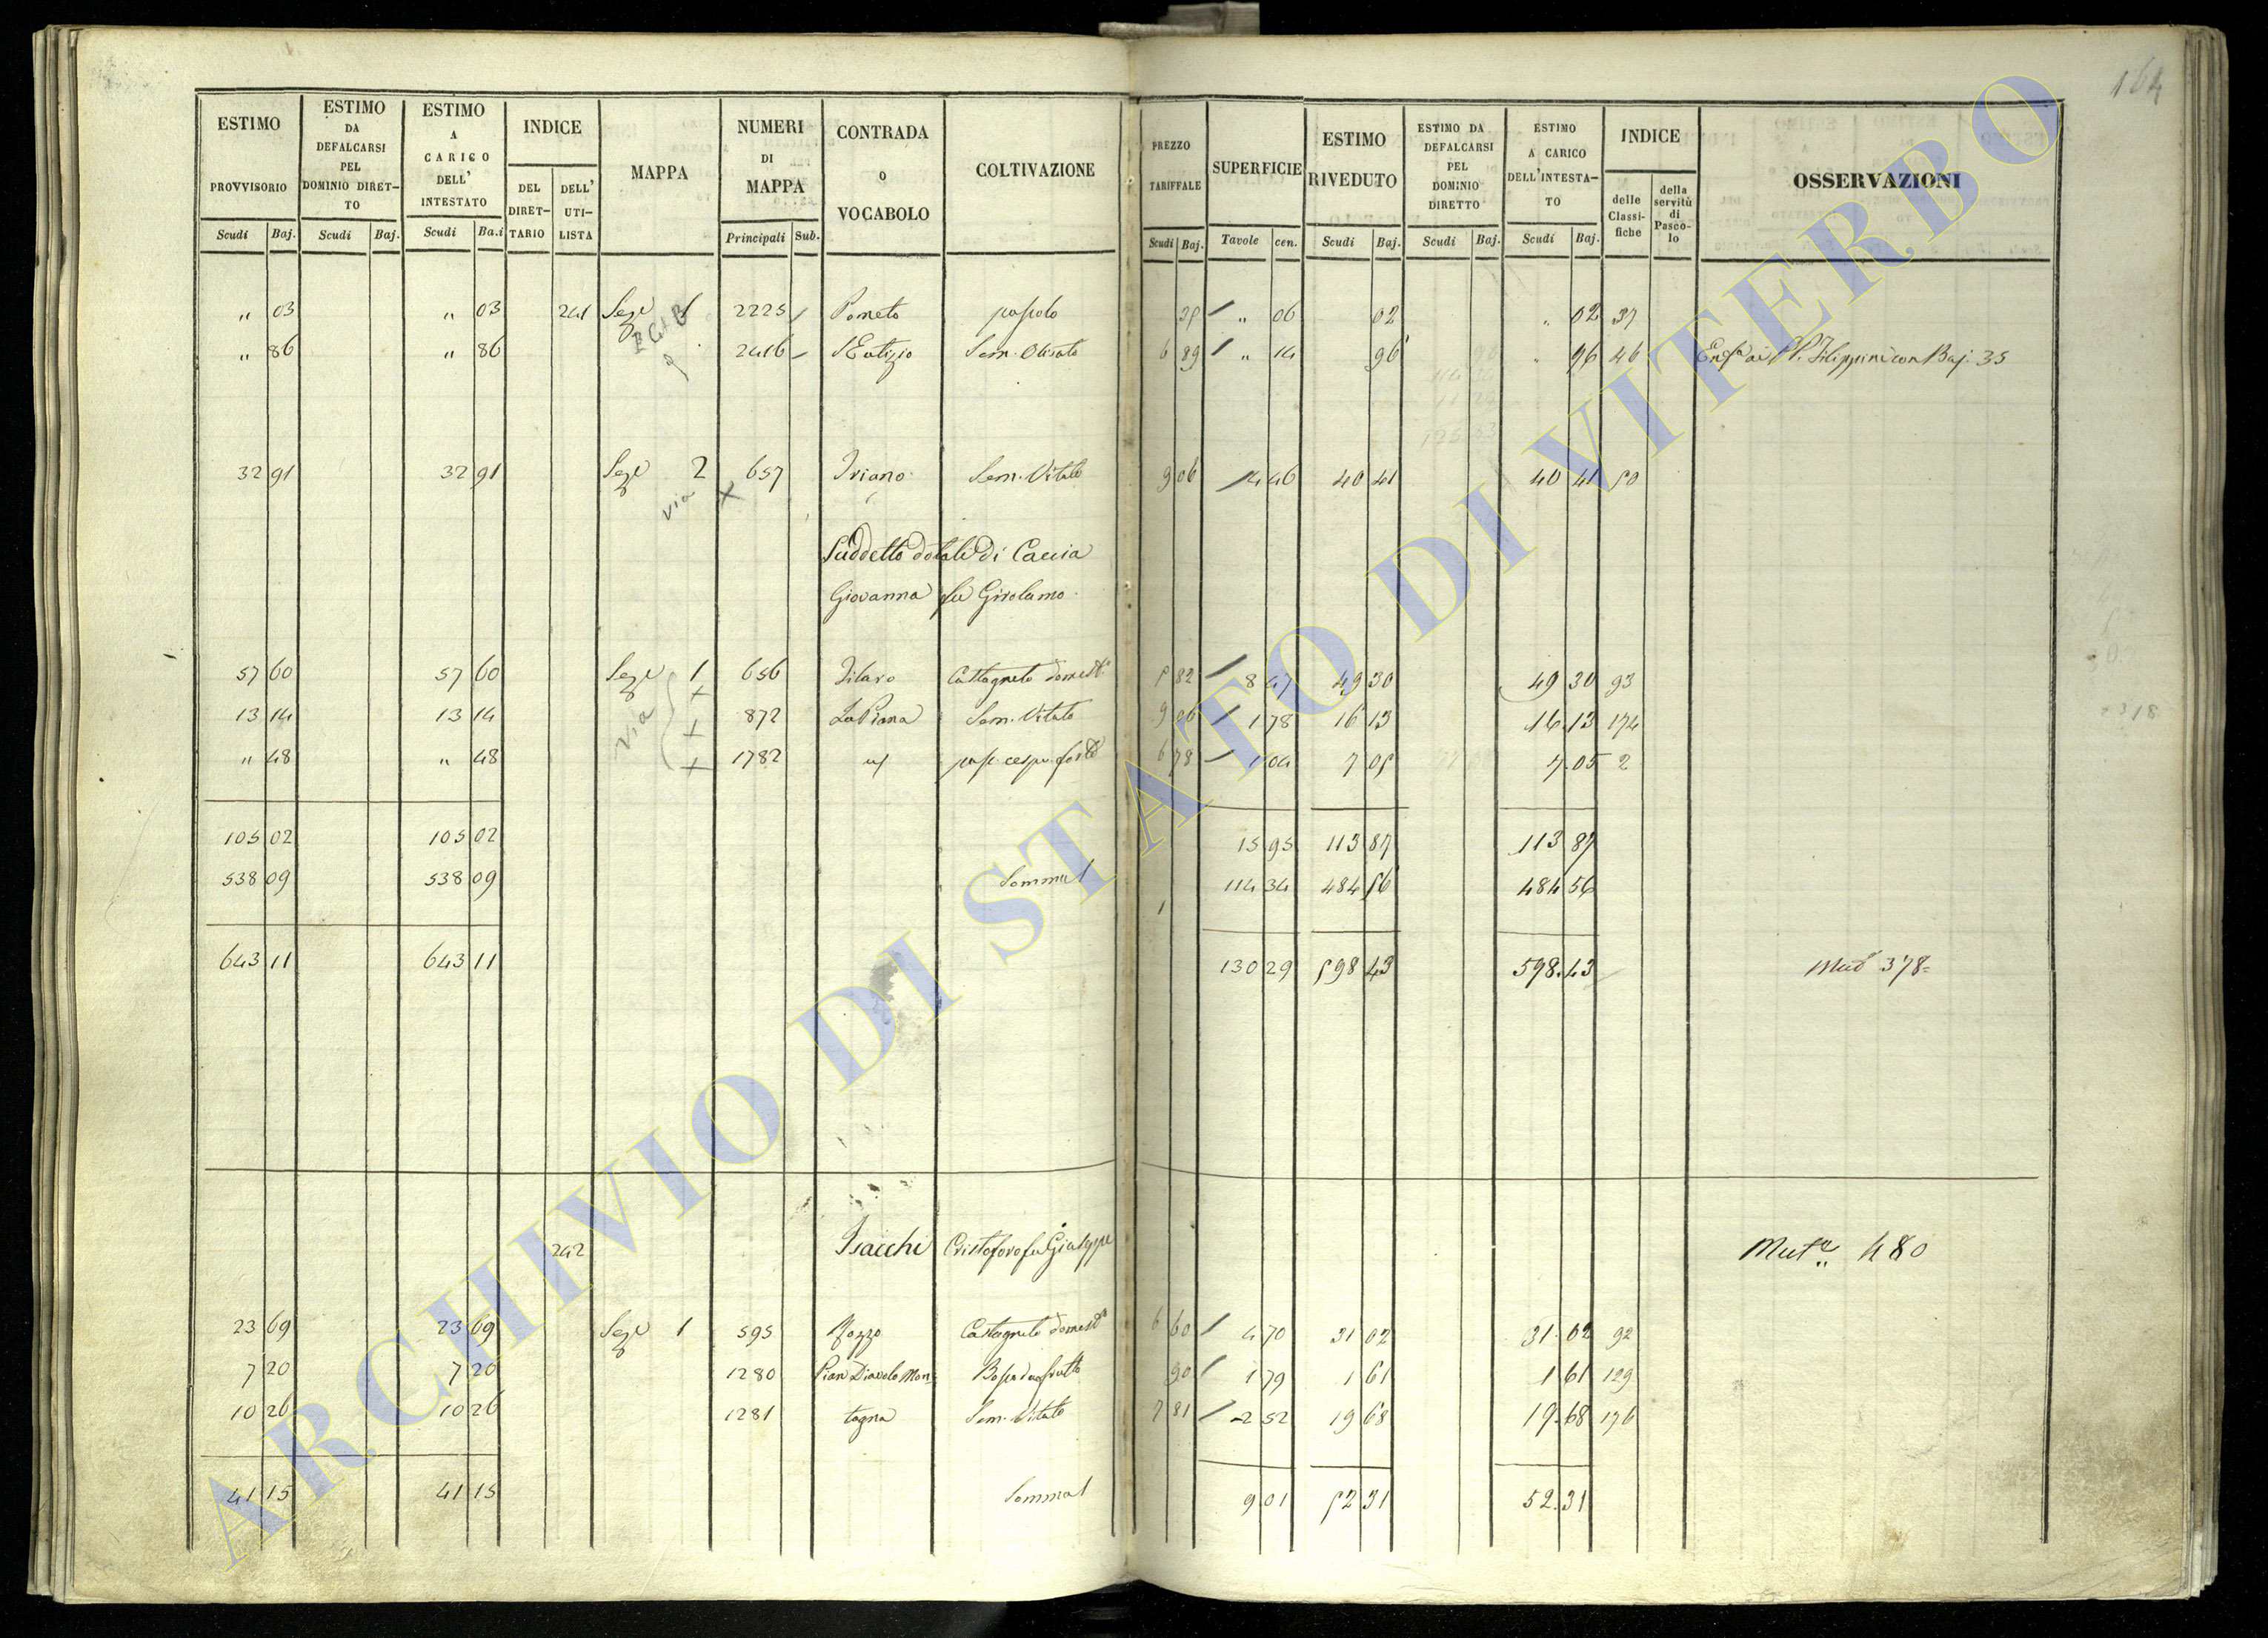 164
ESTIMO PROVVISORIO Scudi Baj.
ESTIMO DA DEFALCARSI PEL DOMINIO DIRETTO Scudi Baj.
ESTIMO A CARICO DELL' INTESTATO Scudi Ba.i
INDICE DEL DIRETTARIO DELL' UTILISTA
MAPPA
NUMERI DI MAPPA Principali Sub.
CONTRADA O VOCABOLO
COLTIVAZIONE
PREZZO TARIFFALE Scudi Baj.
SUPERFICIE Tavole cen.
ESTIMO RIVEDUTO Scudi Baj.
ESTIMO DA DEFALCARSI PEL DOMINIO DIRETTO Scudi Baj.
ESTIMO A CARICO DELL'INTESTATO Scudi Baj.
INDICE delle Classifiche della servitù di Pascolo
OSSERVAZIONI
" 03 " 03 241 Seze 1 2225 Pometo pascolo 39 " 06 02 " 02 37
" 86 " 86 2416 S Eutizio Sem. Olivato 6 89 " 14 96 " 96 46 Enfa ai PP. Filippini con Baj. 35
32 91 32 91 Seze 2 657 Iriano Sem. Vitato 9 06 4 46 40 41 40 41 50
via
Suddetto dotali di Caccia
Giovanna fu Girolamo
57 60 57 60 Seze 1 656 Filaro Castagneto domest. 5 82 8 47 49 30 49 30 93
Via
13 14 13 14 872 La Piana Sem. Vitato 9 06 1 78 16 13 16 13 174
" 48 " 48 1782 past. cespu. forte 6 78 1 04 7 05 7 05 2
105 02 105 02 15 95 113 87 113 87
538 09 538 09 Somma 114 34 484 56 484 56
643 11 643 11 130 29 598 43 598.43 Mut 378=
242 Isacchi Cristoforo fu Giuseppe Muta 480
23 69 23 69 Seze 1 595 Mozzo Castagneto domest 6 60 4 70 31 02 31 02 92
7 20 7 20 1280 Pian Diavolo Mon= Bosco da frutto 90 1 79 1 61 1 61 129
10 26 10 26 1281 tagna Sem. Vitato 7 81 2 52 19 68 19.68 176
41 15 41 15 Somma 9 01 52 31 52.31
ARCHIVIO DI STATO DI VITERBO